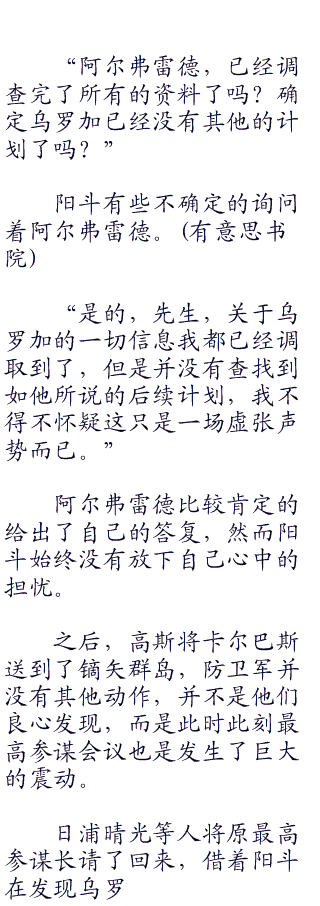 “阿尔弗雷德，已经调
查完了所有的资料了吗？确
定乌罗加已经没有其他的计
划了吗？”
阳斗有些不确定的询问
着阿尔弗雷德。(有意思书
院)
“是的，先生，关于乌
罗加的一切信息我都已经调
取到了，但是并没有查找到
如他所说的后续计划，我不
得不怀疑这只是一场虚张声
势而已。”
阿尔弗雷德比较肯定的
给出了自己的答复，然而阳
斗始终没有放下自己心中的
担忧。
之后，高斯将卡尔巴斯
送到了镝矢群岛，防卫军并
没有其他动作，并不是他们
良心发现，而是此时此刻最
高参谋会议也是发生了巨大
的震动。
日浦晴光等人将原最高
参谋长请了回来，借着阳斗
在发现乌罗